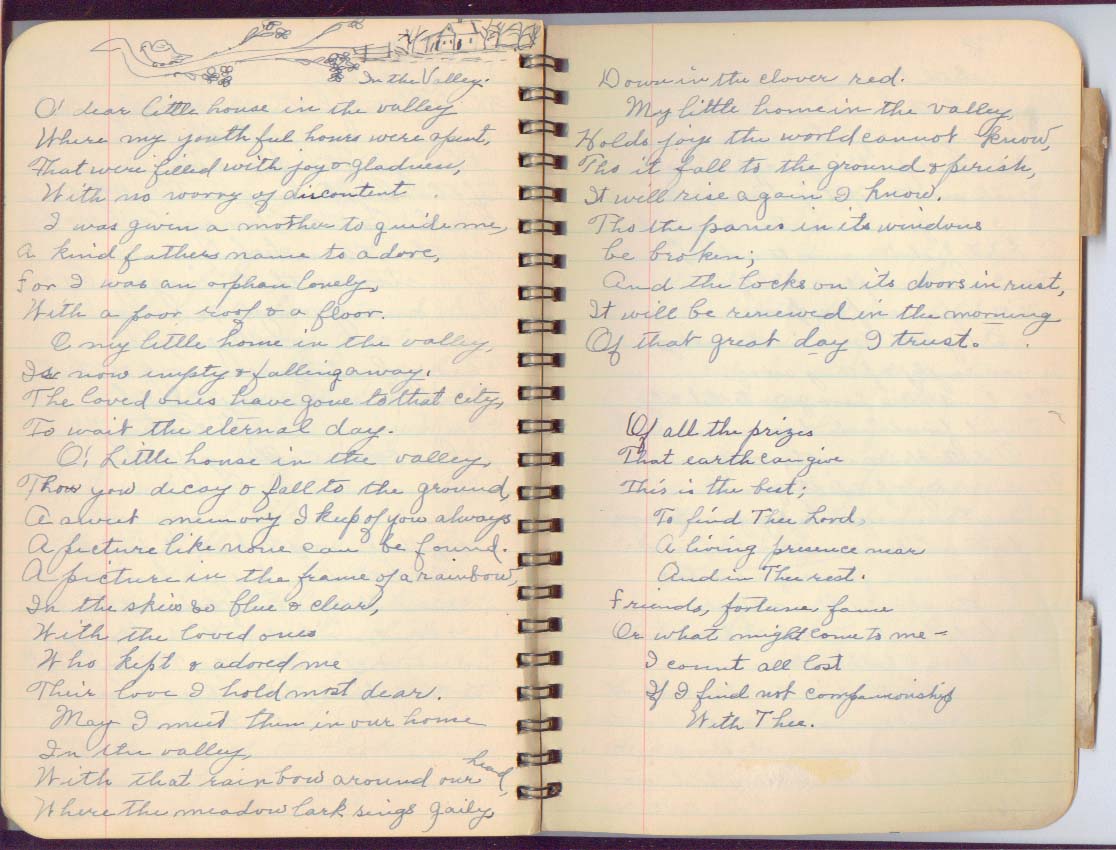 In the Valley.
O' dear little house in the valley
Where my youthful hours were spent,
That were filled with joy & gladness,
With no worry of discontent.
I was given a mother to guide me,
A kind fathers name to adore,
For I was an orphan lonely,
With a poor roof & a floor.
O my little home in the valley,
Is now empty & falling away.
The loved ones have gone to that city,
To wait the eternal day.
O! Little house in the valley,
Thou you decay & fall to the ground,
A sweet memory I keep of you always
A picture like none can be found.
A picture in the frame of a rainbow,
In the skies so blue & clear,
With the loved ones
Who kept & adored me
Their love I hold most dear.
May I meet them in our home
In the valley,
With that rainbow around our head,
Where the meadow lark sings gaily,
Down in the clover red.
My little home in the valley,
Holds joys the world cannot know,
Tho it fall to the ground & perish,
It will rise again I know.
Tho the panes in its windows
be broken;
And the locks on its doors in rust,
It will be renewed in the morning
Of that great day I trust.
Of all the prizes
That earth can give
This is the best;
To find Thee Lord,
A living presence near
And in Thee rest.
Friends, fortune, fame
Or what might come to me –
I count all lost
If I find not companionship
With Thee.